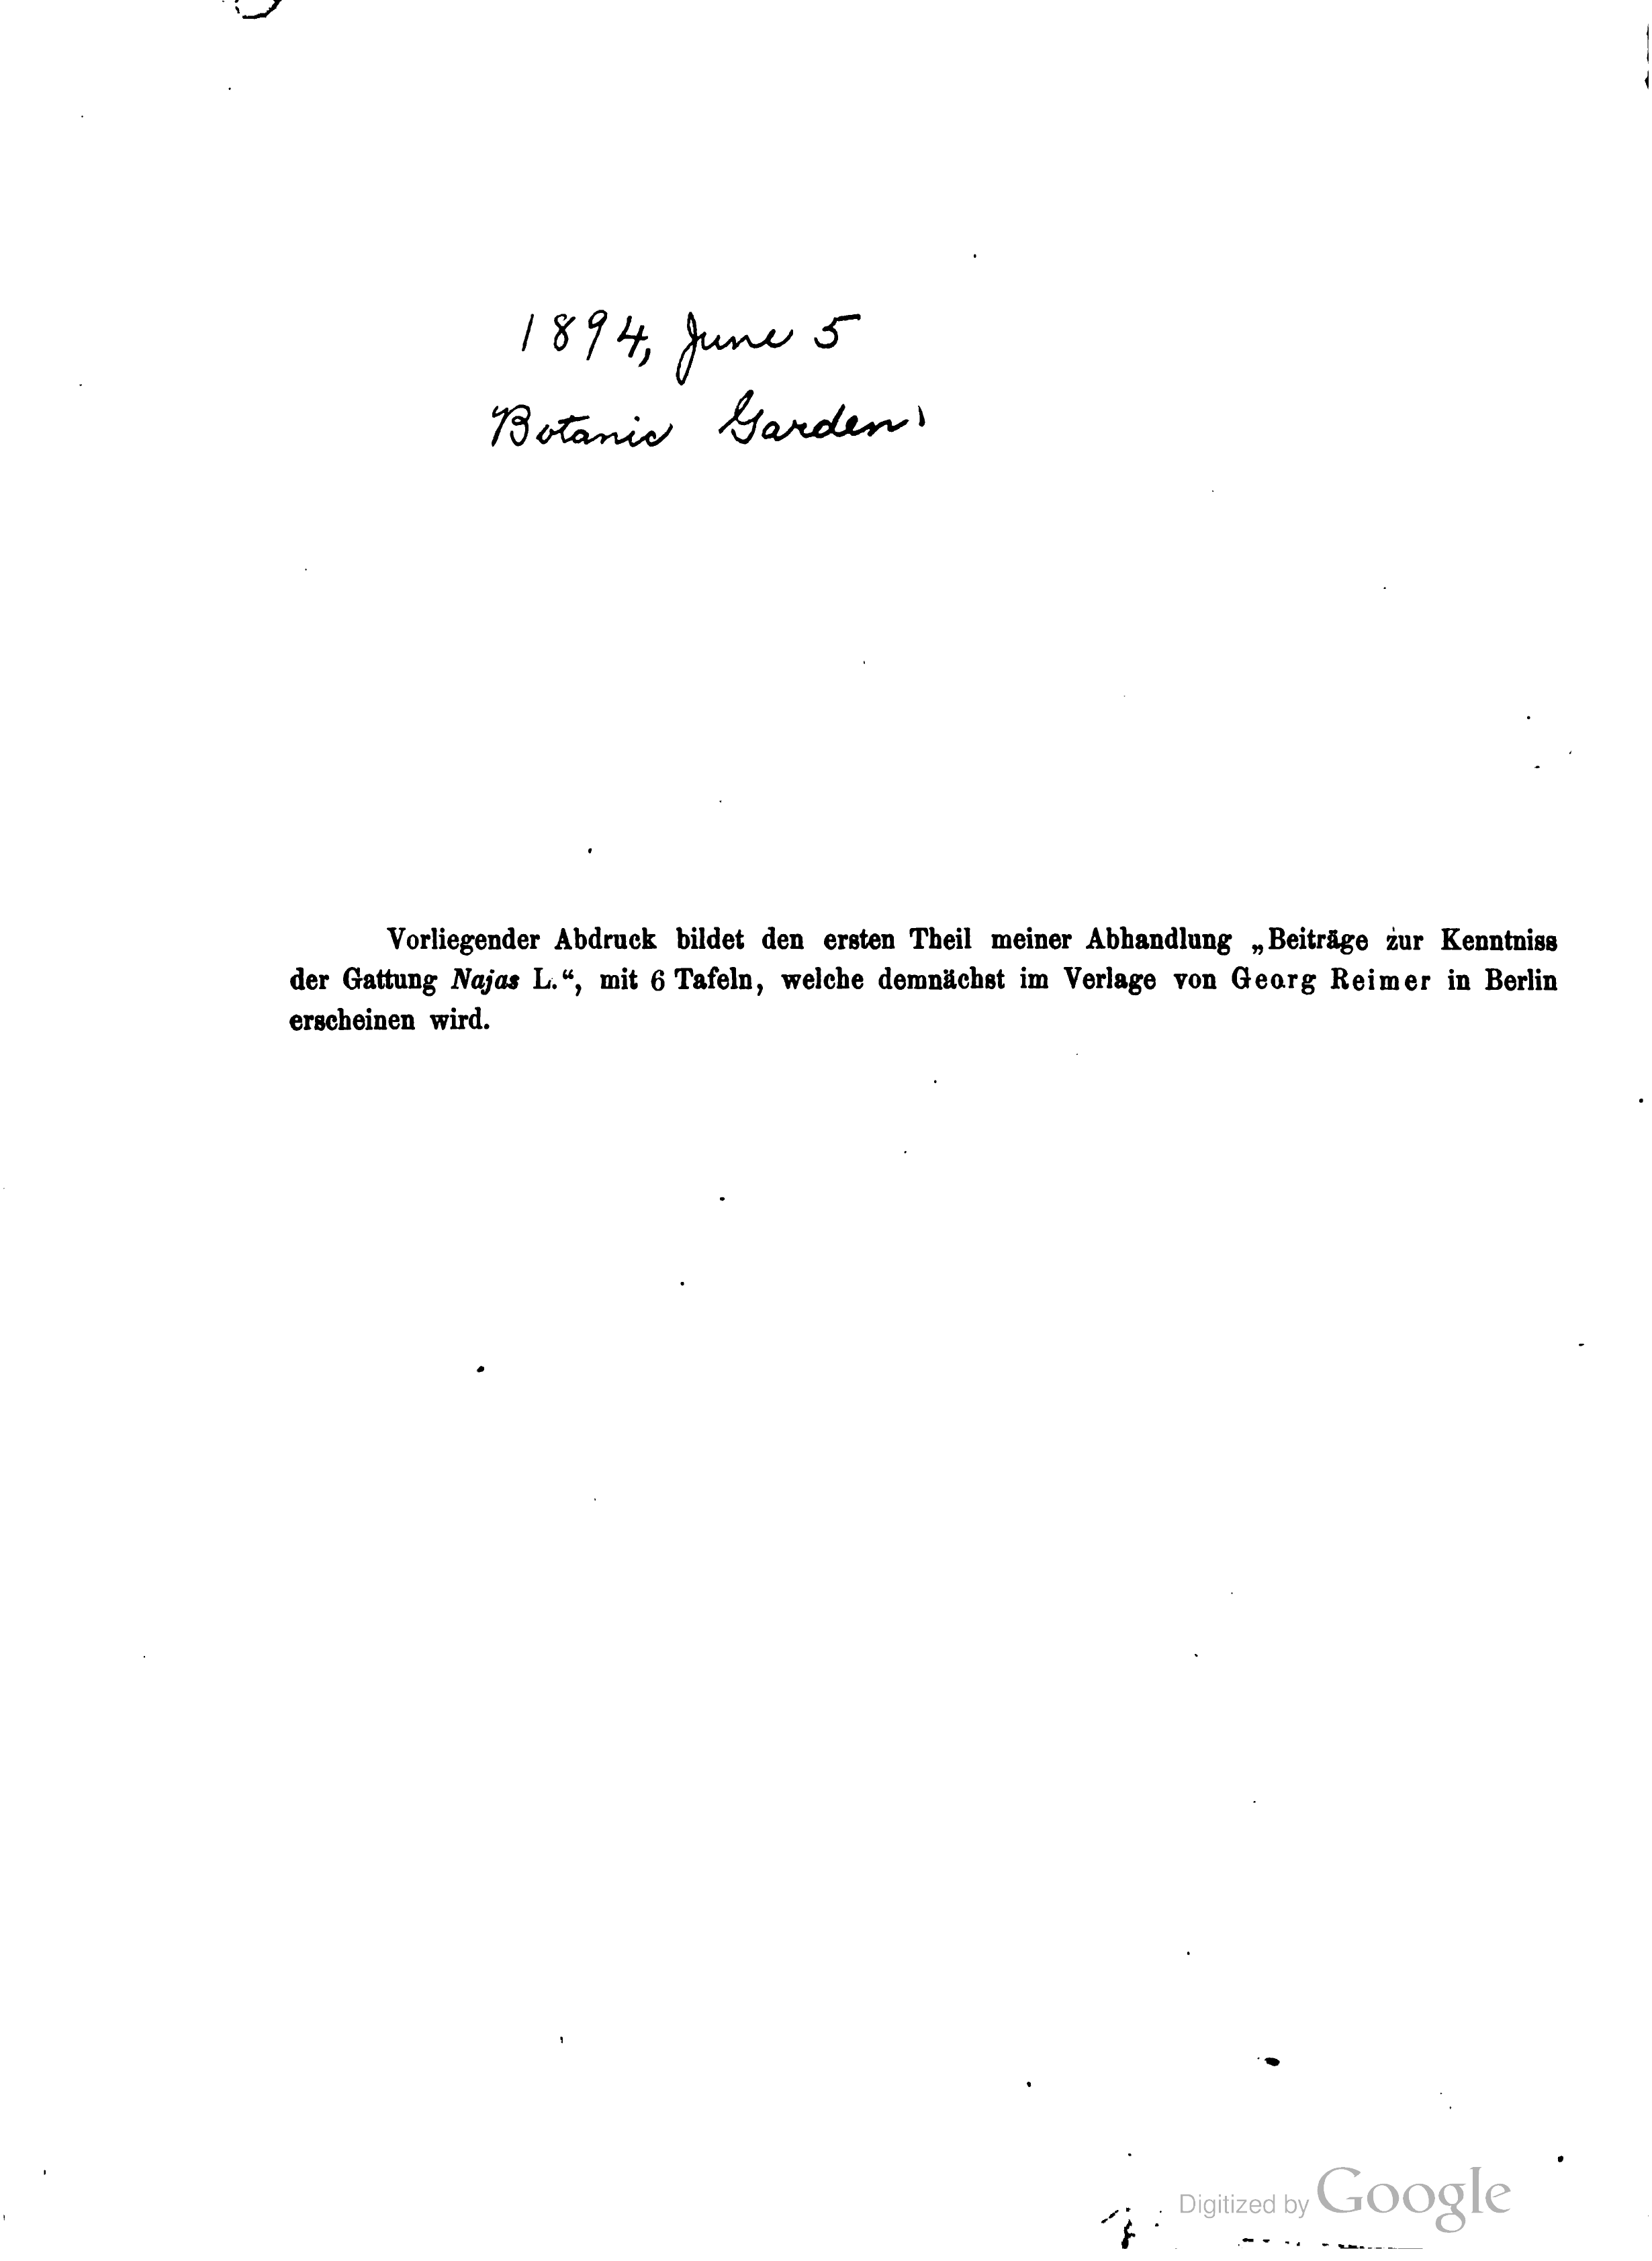 1894, June 5
Botanic Garden
Vorliegender Abdruck bildet den ersten Theil meiner Abhandlung „Beiträge zur Kenntniss
der Gattung Najas L.“, mit 6 Tafeln, welche demnächst im Verlage von Georg Reimer in Berlin
erscheinen wird.
Digitized by Google